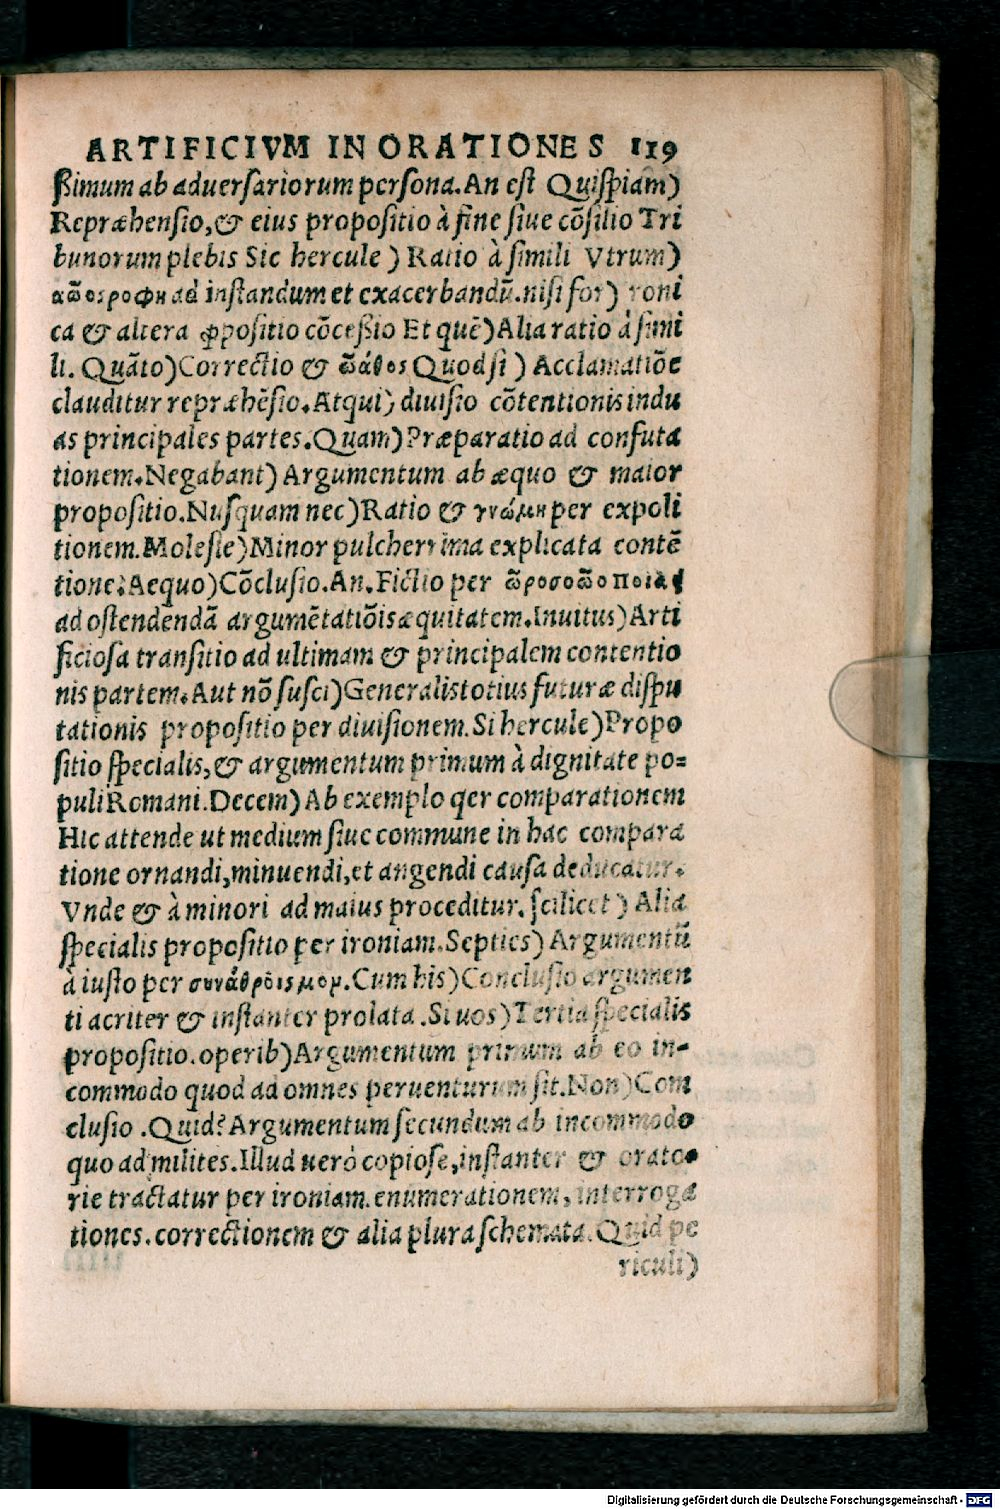 ARTIFICIVM IN ORATIONES 119
ßimum ab aduersariorum persona. An est Quispiam)
Repræhensio, & eius propositio à fine siue cõsilio Tri
bunorum plebis Sic hercule ) Ratio à simili Vtrum)
ἀποςροφη ad instandum et exacerbandũ. nisi for) roni
ca & altera ꝓpositio cõceßio Et quẽ) Alia ratio à simi
li. Quãto) Correctio & πάθος Quod si ) Acclamatiõe
clauditur repræhẽsio. Atqui) diuisio cõtentionis in du
as principales partes. Quam) Præparatio ad confuta
tionem. Negabant) Argumentum ab æquo & maior
propositio. Nusquam nec) Ratio & γνώμη per expoli
tionem. Moleste) Minor pulcherrima explicata contẽ
tione: Aequo) Cõclusio. An. Fictio per προσοποποιίας
ad ostendendã argumẽtatiõis æquitatem. Inuitus) Arti
ficiosa transitio ad ultimam & principalem contentio
nis partem. Aut nõ susci) Generalis totius futuræ dispu
tationis propositio per diuisionem. Si hercule) Propo
sitio specialis, & argumentum primum à dignitate po=
puli Romani. Decem) Ab exemplo qer comparationem
Hic attende ut medium siue commune in hac compara
tione ornandi, minuendi, et angendi causa deducatur.
Vnde & à minori ad maius proceditur. scilicet ) Alia
specialis propositio per ironiam. Septies) Argumentũ
à iusto per συνάθροισμον. Cum his) Conclusio argumen
ti acriter & instanter prolata . Si uos ) Tertia specialis
propositio. operib) Argumentum primum ab eo in-
commodo quod ad omnes peruenturum sit. Non) Com
clusio . Quid? Argumentum secundum ab incommodo
quo ad milites. Illud uerò copiose, instanter & orato-
rie tractatur per ironiam. enumerationem, interroga
tiones. correctionem & alia plura schemata. Quid pe
riculi)
Digitalisierung gefördert durch die Deutsche Forschungsgemeinschaft - DFG